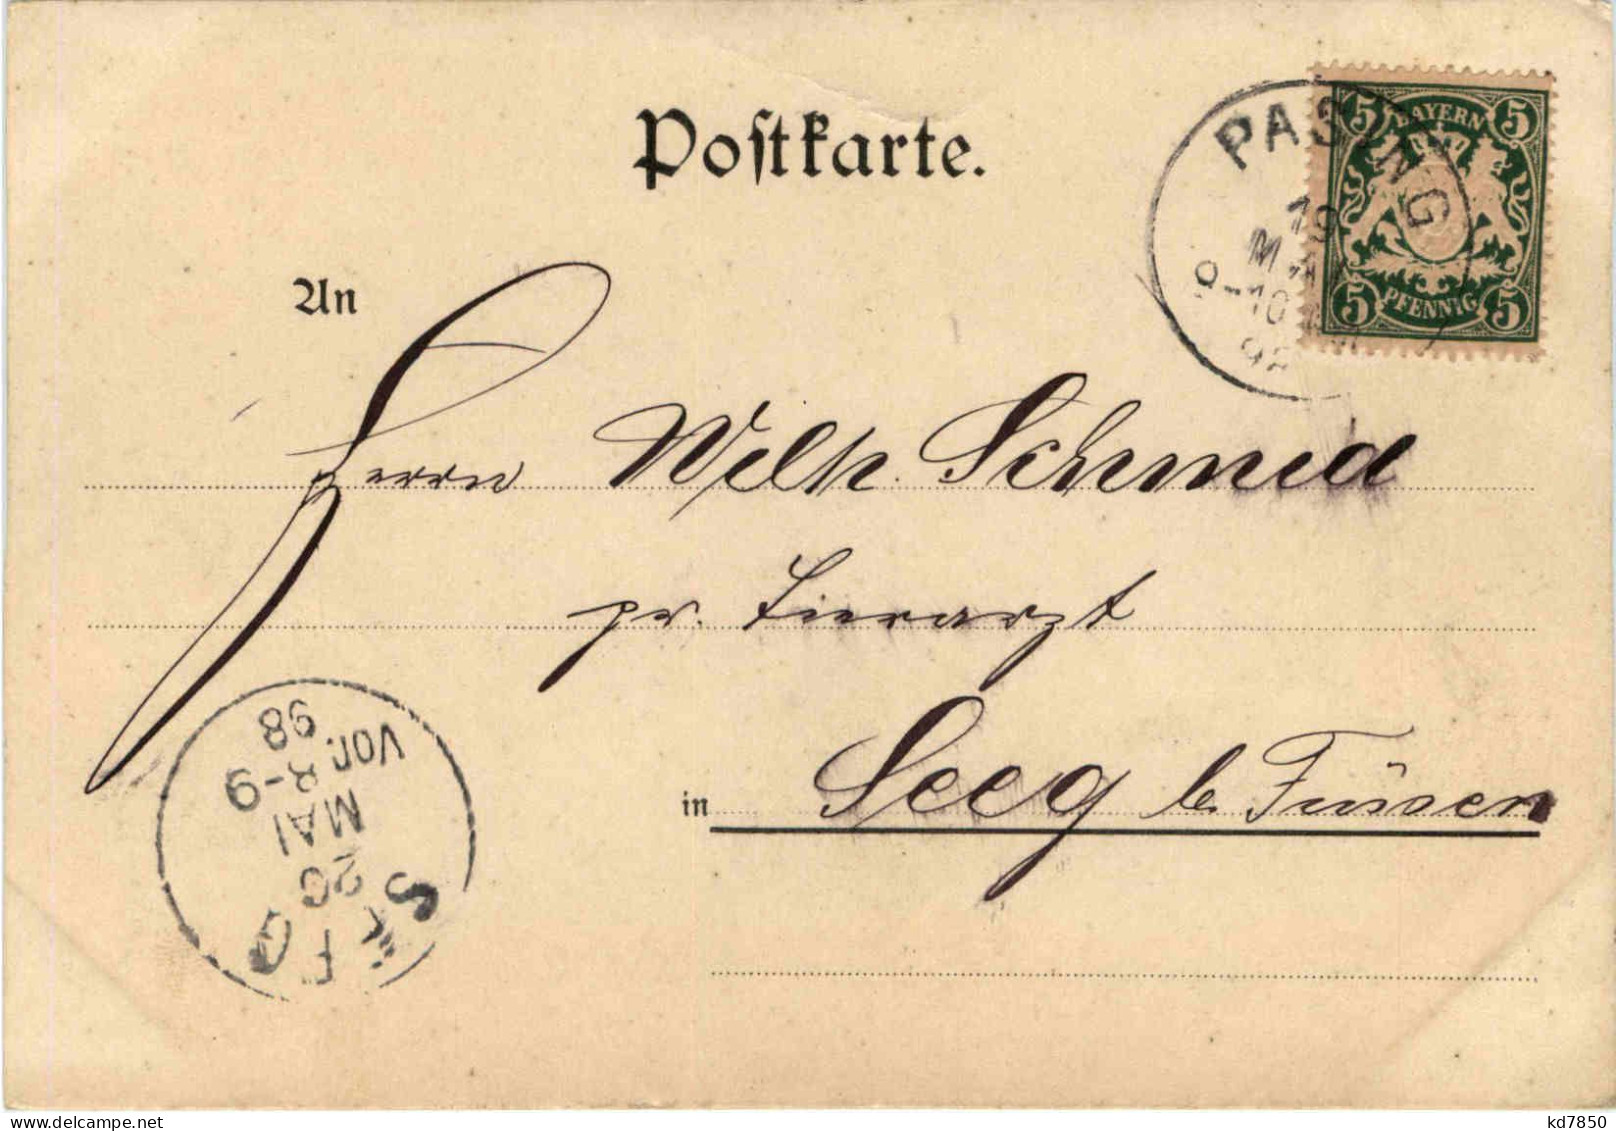 Postkarte.
BAYERN
5 5
5 5
PFENNIG
PASING
19
MAI
9-10
98
An
Herrn Wilh. Schmid
pr. Tierarzt
in Seeg b. Füssen
SEEG
20
MAI
Vor. 8-9
98
delcampe.net
kd7850